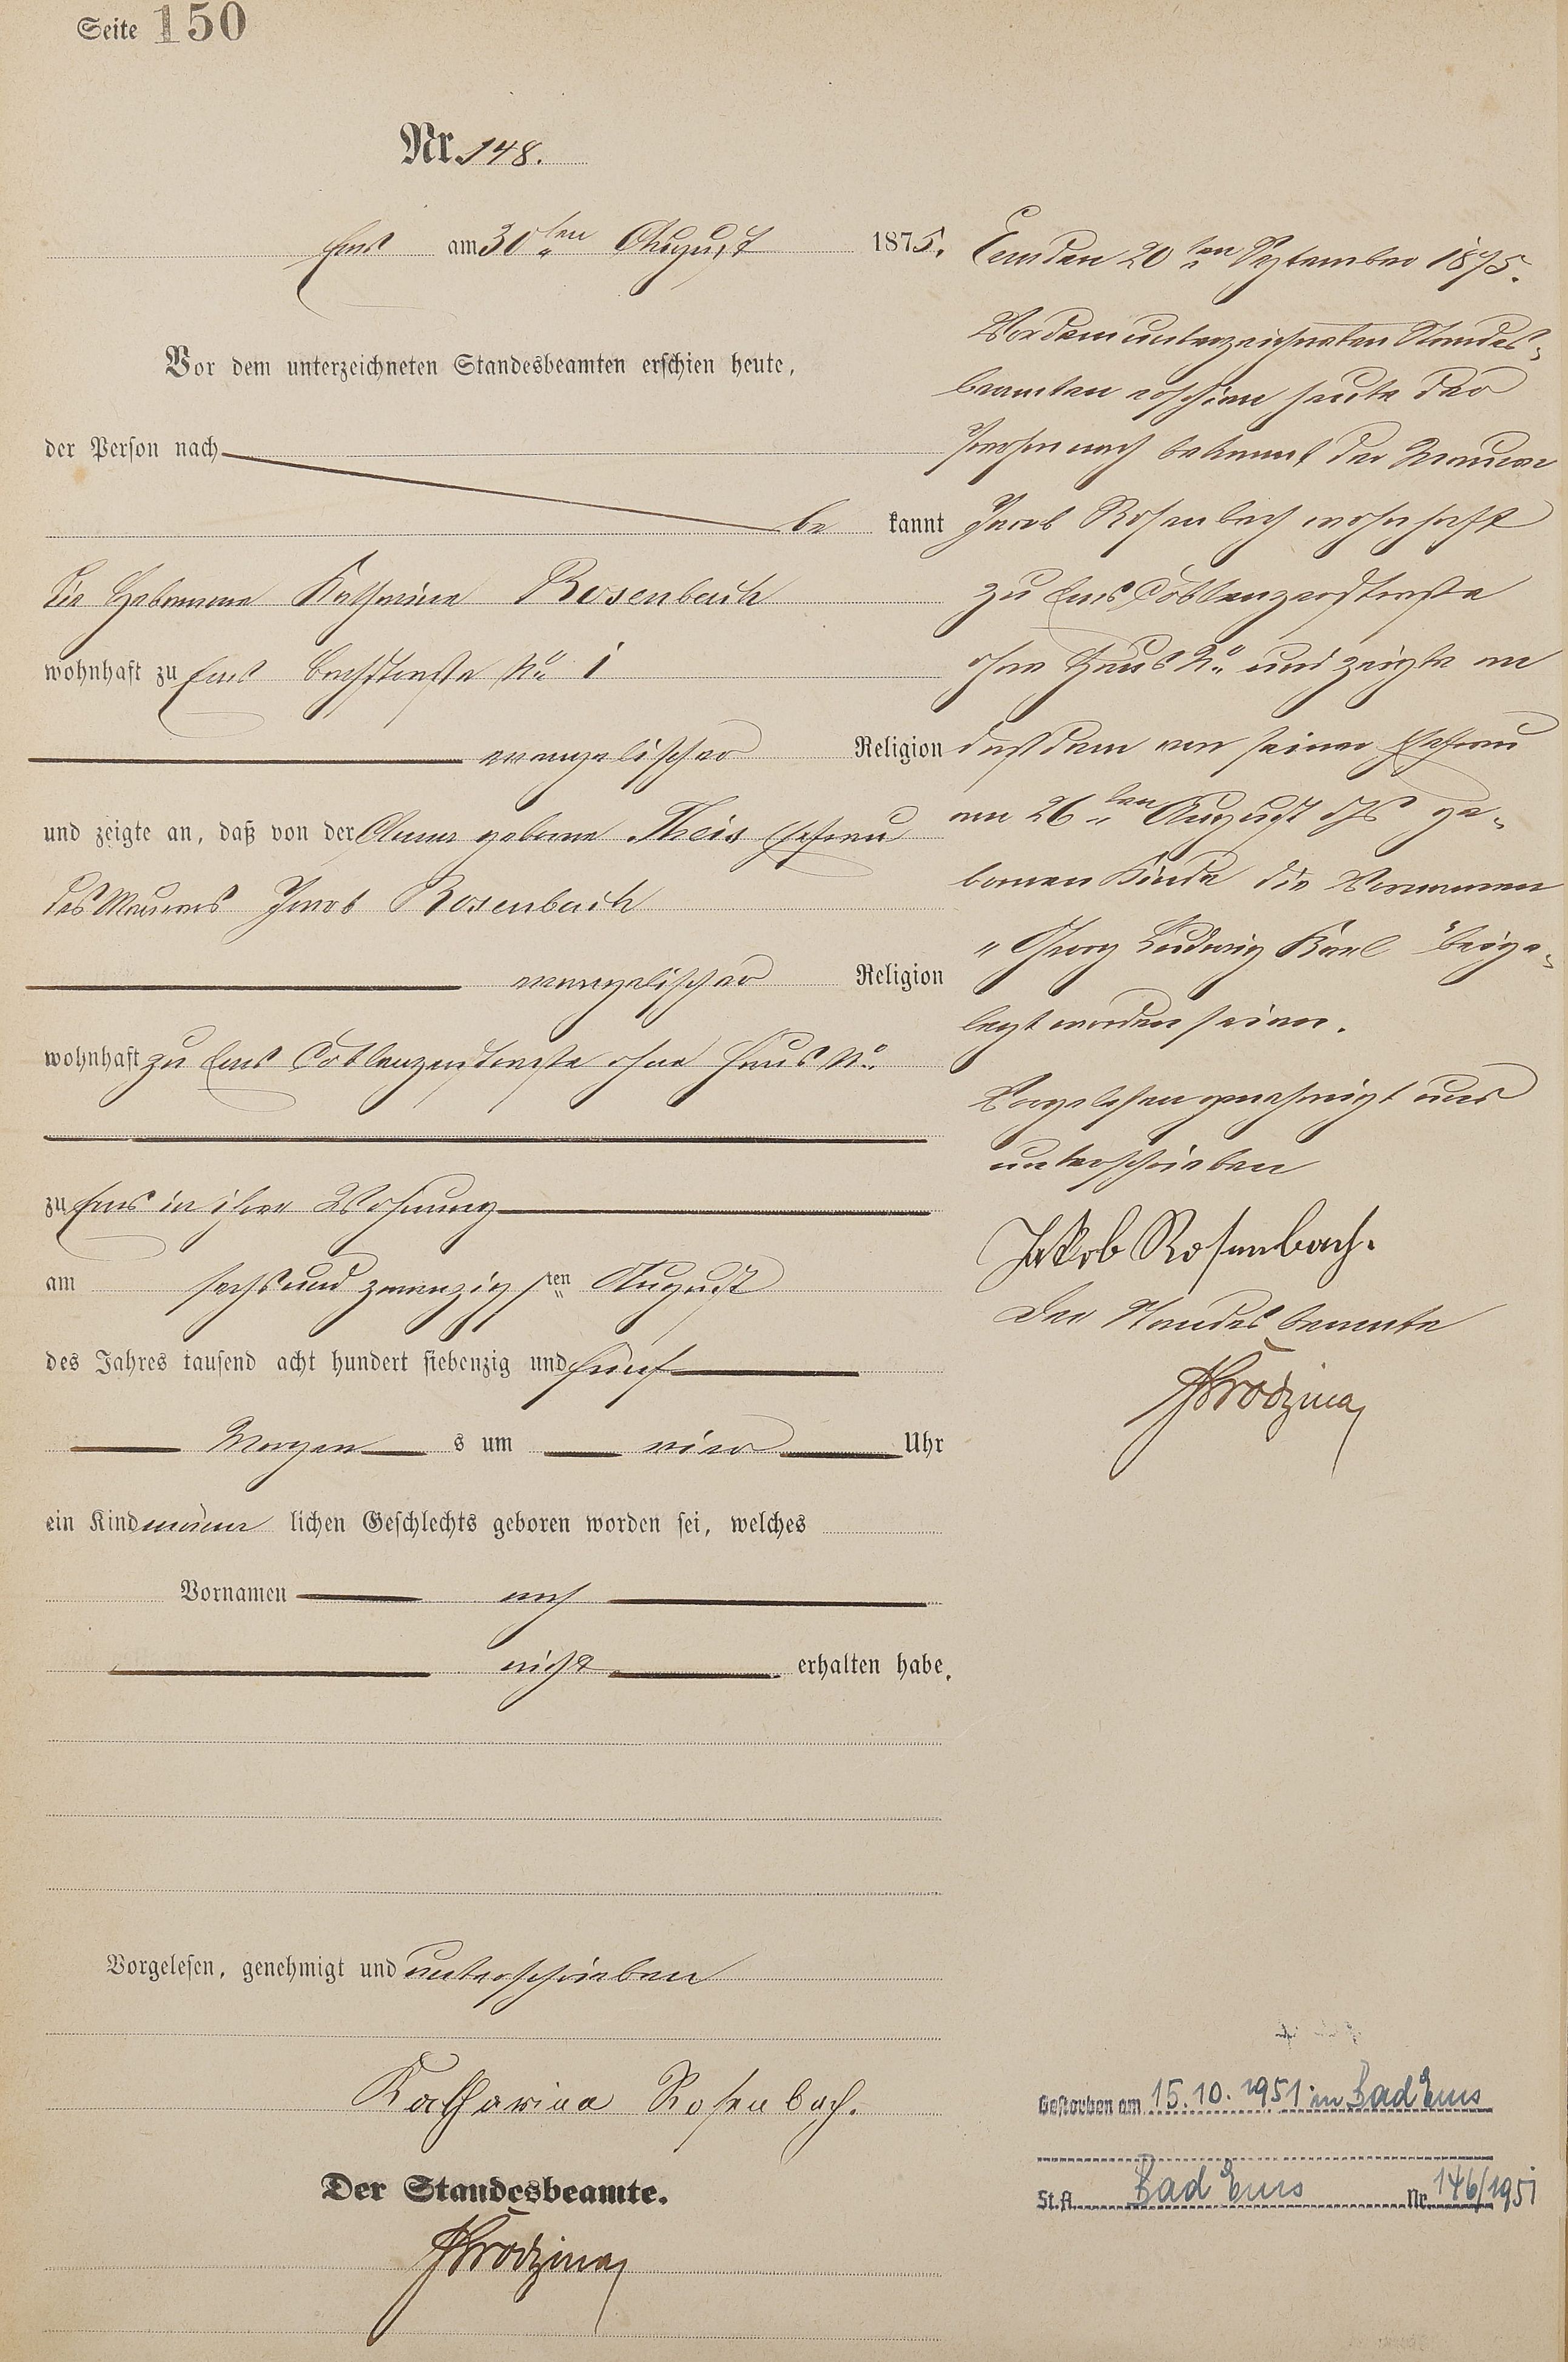 Seite 150
Nr. 148.
Ems am 30ten August 1875.
Vor dem unterzeichneten Standesbeamten erschien heute,
der Person nach
be kannt
die Hebamme Katharina Rosenbach
wohnhaft zu Ems Bachstraße No 1
evangelischer Religion
und zeigte an, daß von der Anna geborne Theis Ehefrau
des Maurers Jacob Rosenbach
evangelischer Religion
wohnhaft zu Ems Coblenzerstraße ohne Haus No.
zu Ems in ihrer Wohnung
am sechsundzwanzigsten August
des Jahres tausend acht hundert siebenzig und fünf
Morgen s um vier Uhr
ein Kind männ lichen Geschlechts geboren worden sei, welches
Vornamen noch
nicht erhalten habe.
Vorgelesen, genehmigt und unterschrieben
Katharina Rosenbach.
Der Standesbeamte.
Ems den 20ten September 1875.
Vor dem unterzeichneten Standes-
beamten erschien heute der
Person nach bekannt der Maurer
Jacob Rosenbach wohnhaft
zu Ems Coblenzerstraße
ohne Haus No. und zeigte an
daß dem von seiner Ehefrau
am 26ten August djs ge-
bornen Kinde die Vornamen
"Georg Ludwig Karl" beige-
legt worden seien.
Vorgelesen genehmigt und
unterschrieben
Jakob Rosenbach.
Der Standesbeamte
Gestorben am 15.10.1951 in Bad Ems
St.A. Bad Ems Nr. 146/1951